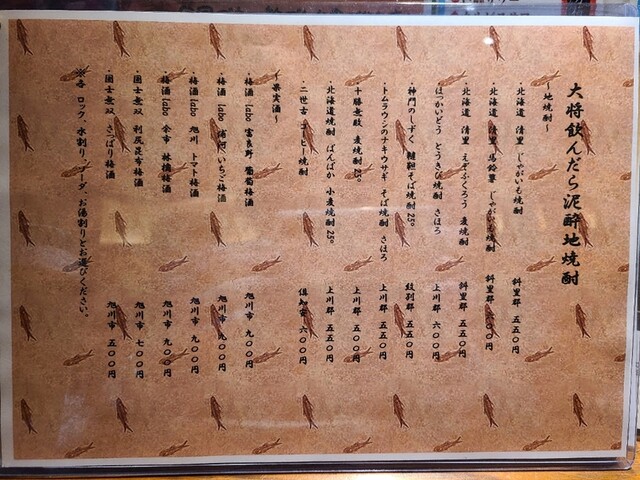 大将飲んだら泥酔地焼酎
～地焼酎～
・北海道 清里 じゃがいも焼酎 斜里郡 五五〇円
・北海道 清里 馬鈴薯 じゃがいも焼酎 斜里郡 六〇〇円
・北海道 清里 えぞふくろう 麦焼酎 斜里郡 五五〇円
・ほっかいどう とうきび焼酎 さほろ 上川郡 六〇〇円
・神門のしずく 韃靼そば焼酎25° 紋別郡 五五〇円
・トムラウシのナキウサギ そば焼酎 さほろ 上川郡 五五〇円
・十勝無敗 麦焼酎25° 上川郡 五〇〇円
・北海道焼酎 ばんばか 小麦焼酎25° 上川郡 五五〇円
・二世古 コーヒー焼酎 倶知安 六〇〇円
～果実酒～
・梅酒 labo 富良野 葡萄梅酒 旭川市 九〇〇円
・梅酒 labo 浦河 いちご梅酒 旭川市 九〇〇円
・梅酒 labo 旭川 トマト梅酒 旭川市 九〇〇円
・梅酒 labo 余市 林檎梅酒 旭川市 九〇〇円
・国士無双 利尻昆布梅酒 旭川市 七〇〇円
・国士無双 さっぱり梅酒 旭川市 五〇〇円
※各 ロック、水割り、ソーダ、お湯割りとお選びください。